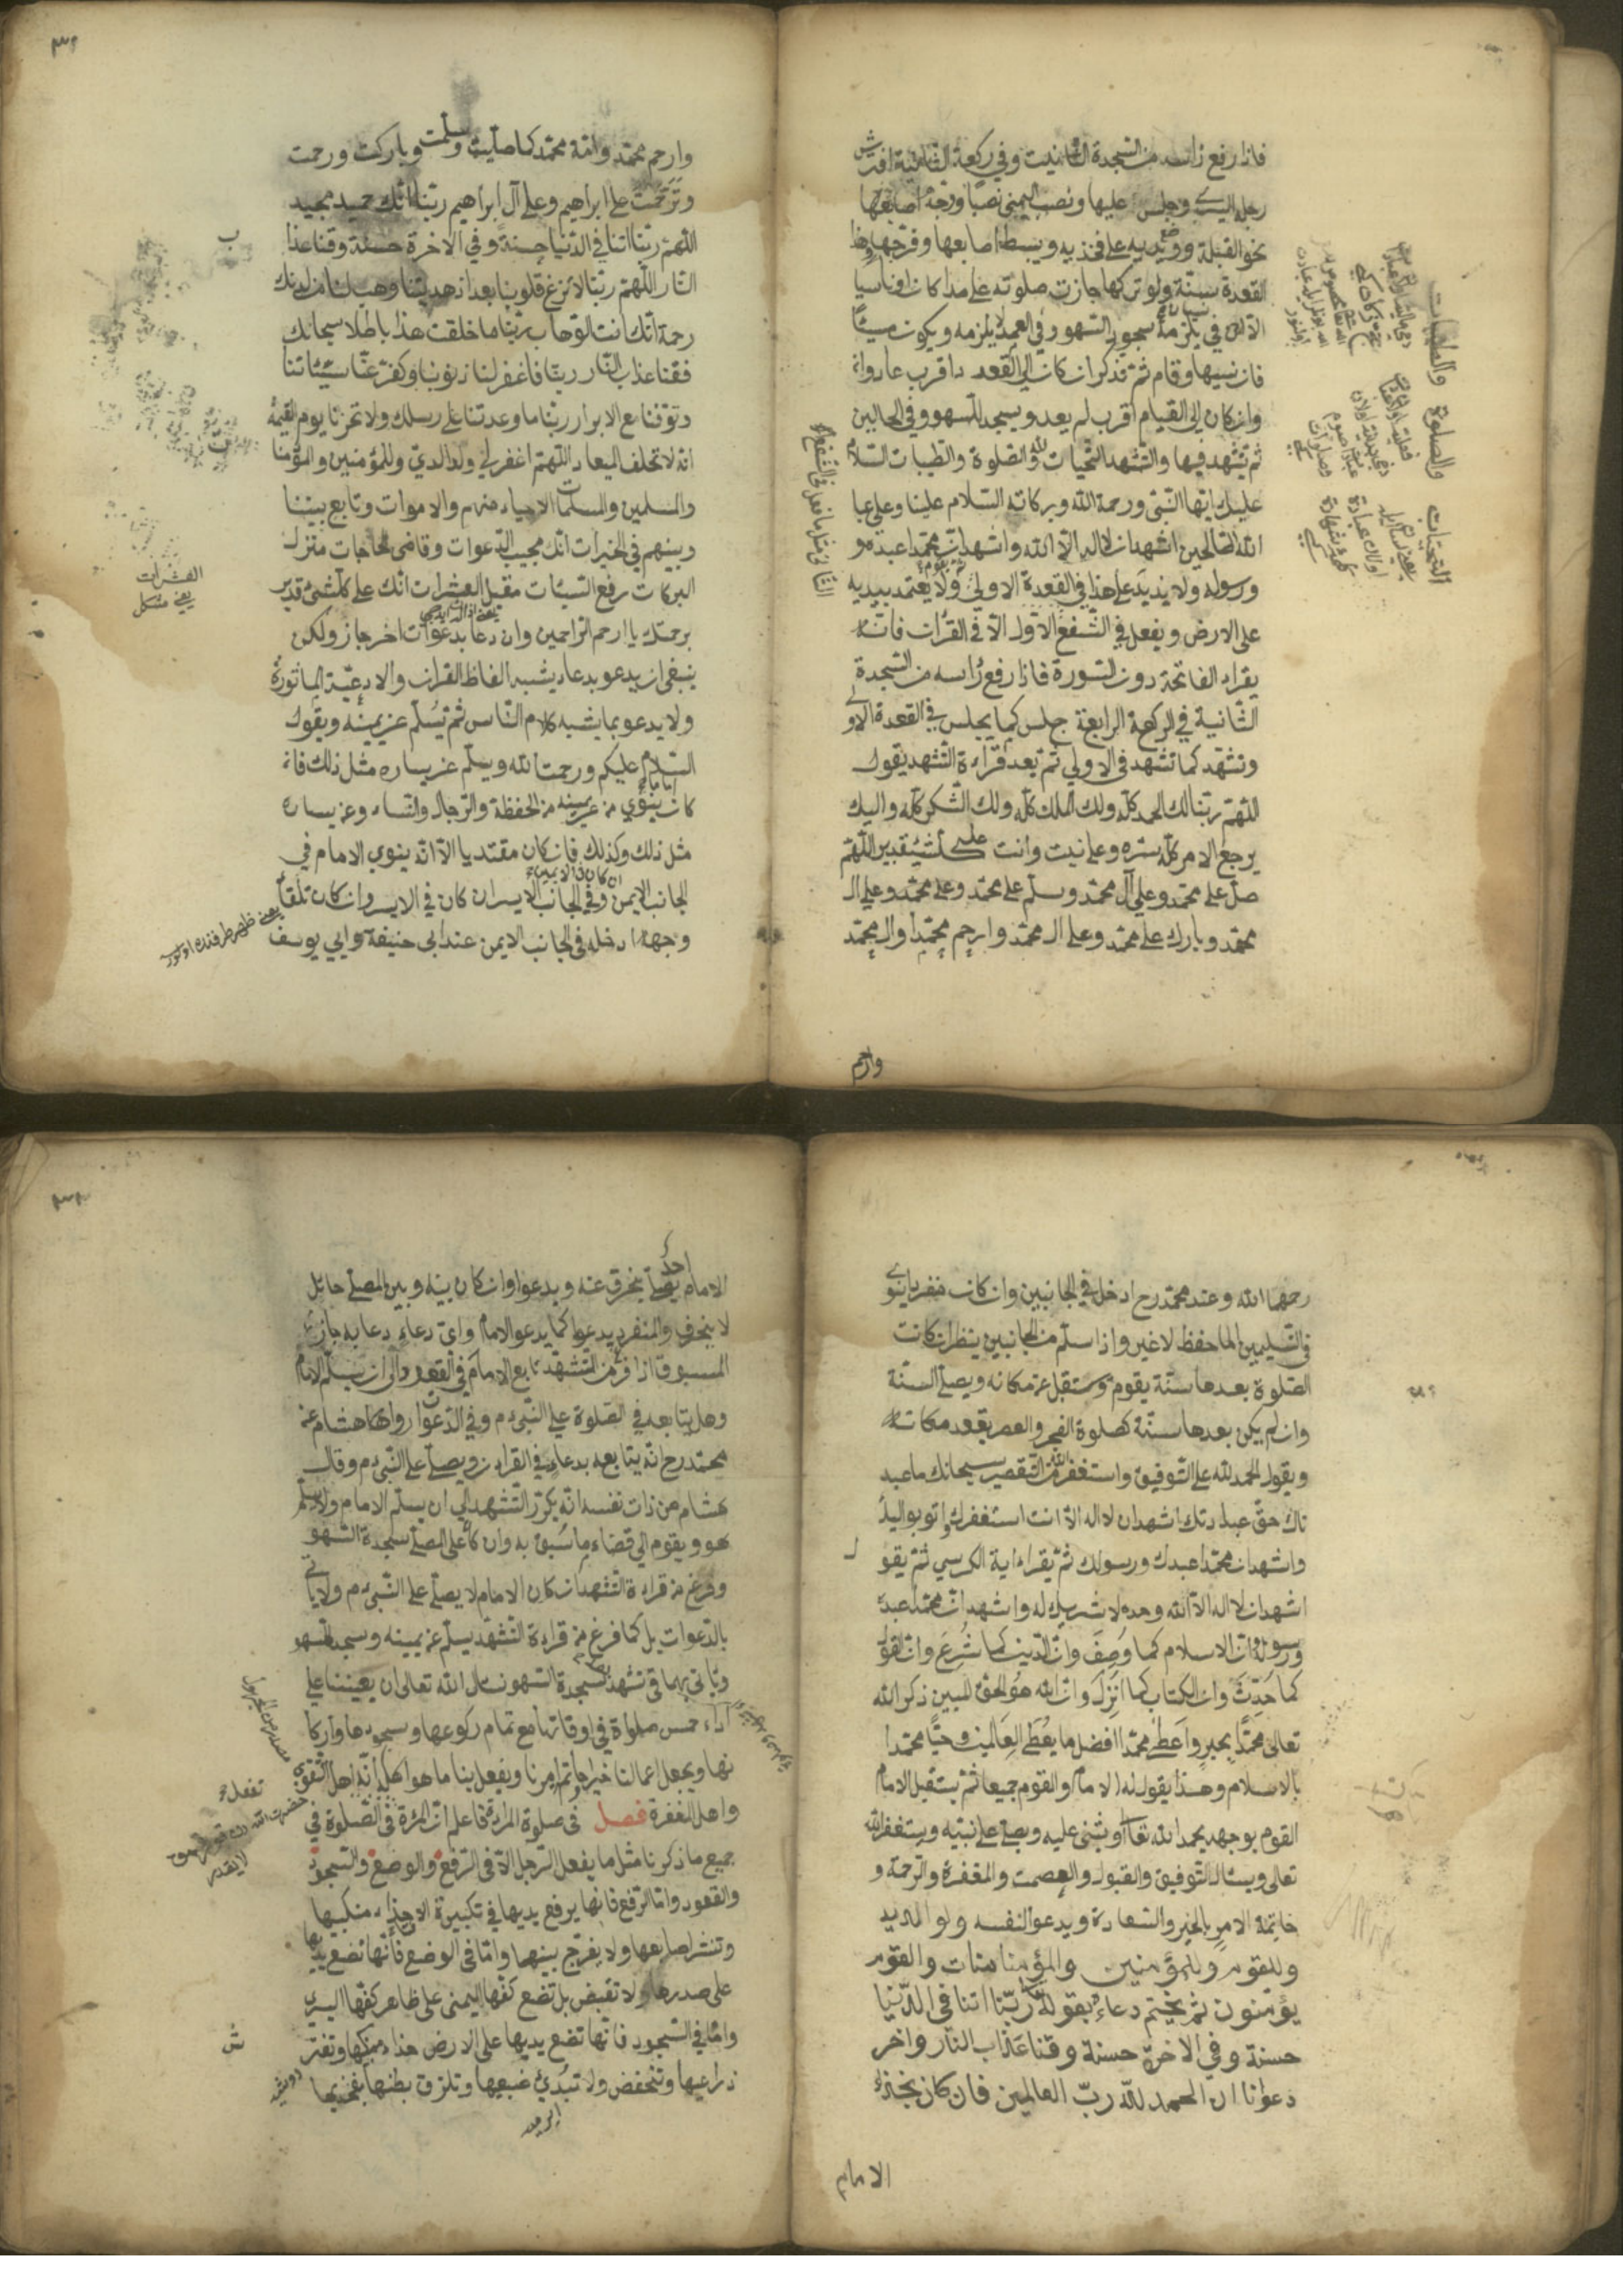 فاذا رفع راسه من السجدة الثانيت وفي ركعة الثانية افترش
رجله اليسرى وجلس عليها ونصب اليمنى نصبا ووجه اصابعها
نحو القبلة ووضع يديه على فخذيه ويبسط اصابعها وفرجها وهذا
القعدة سنة ولو تركها جازت صلوته عامدا كان او ناسيا
الا ان في يلزمه سجود السهو وفي العمد لا يلزمه ويكون مسيئا
فان نسيها وقام ثم تذكر ان كان الى القعد اقرب عاد وان
وان كان الى القيام اقرب لم يعد ويسجد للسهو وفي الحالين
ثم تشهد فيها والتشهد التحيات لله والصلوة والطيبات السلام
عليك ايها النبي ورحمة الله وبركاته السلام علينا وعلى عبا
الله الصالحين اشهد ان لا اله الا الله واشهد ان محمدا عبده و
ورسوله ولا يزيد على هذا في القعدة الاولى ولا يعتمد بيديه
على الارض ويفعل في الشفع الاول الا في القران فانه
يقراء الفاتحة دون السورة فاذا رفع راسه من السجدة
الثانية في الركعة الرابعة جلس كما يجلس في القعدة الاولى
وتشهد كما تشهد في الاولى ثم يعد قراءة التشهد يقول
اللهم ربنا لك الحمد كله ولك الملك كله ولك الشكر كله واليك
يرجع الامر كله سره وعلانيت وانت على كل شئ قدير اللهم
صل على محمد وعلى آل محمد وسلم على محمد وعلى محمد وعلى ال
محمد وبارك على محمد وعلى ال محمد وارحم محمدا وال محمد
وارحم
التحيات والصلوة والطيبات
وارحم محمد وامة محمد كما صليت وسلمت وباركت ورحمت
وترحمت على ابراهيم وعلى آل ابراهيم ربنا انك حميد مجيد
اللهم ربنا اتنا في الدنيا حسنة وفي الاخرة حسنة وقنا عذا
النار اللهم ربنا لا تزغ قلوبنا بعد اذ هديتنا وهب لنا من لدنك
رحمة انك انت الوهاب ربنا ما خلقت هذا باطلا سبحانك
فقنا عذاب النار ربنا فاغفر لنا ذنوبنا وكفر عنا سيئاتنا
وتوفنا مع الابرار ربنا ما وعدتنا على رسلك ولا تحزنا يوم القيمة
انك لا تخلف الميعاد اللهم اغفر لي ولوالدي وللمؤمنين والمؤمنا
والمسلمين والمسلمات الاحياء منهم والاموات وتابع بيننا
وبينهم في الخيرات انك مجيب الدعوات وقاضى الحاجات منزل
البركات رفع السيئات مقبل العشرات انك على كل شئ قدير
برحمتك يا ارحم الراحمين وان دعا بدعوات اخر جاز ولكن
ينبغى ان يدعو بدعاء يشبه الفاظ القران والادعية الماثورة
ولا يدعو بما يشبه كلام الناس ثم يسلم عن يمينه ويقول
السلام عليكم ورحمت الله ويسلم عن يساره مثل ذلك فان
كان ينوي من عن يمينه من الحفظة والرجال والنساء وعن يساره
مثل ذلك وكذلك فان كان مقتديا الا انه ينوي الامام في
الجانب الايمن وفي الجانب الايسر ان كان في الايسر وان كان تلقاء
وجهه ادخله في الجانب الايمن عند ابى حنيفة وابي يوسف
العشرات
يعني مشكل
رحمهما الله وعند محمد رح ادخل في الجانبين وان كان منفردا ينوي
في التسليمين الحافظ لا غير واذا سلم من الجانبين ينظر ان كانت
الصلوة بعدها سنة يقوم وينتقل عن مكانه ويصلى السنة
وان لم يكن بعدها سنة كصلوة الفجر والعصر يقعد مكانه
ويقول الحمد لله على التوفيق واستغفر الله من التقصير سبحانك ما عبد
ناك حق عبادتك اشهد ان لا اله الا انت استغفرك واتوب اليك
واشهد ان محمدا عبدك ورسولك ثم يقراء اية الكرسي ثم يقو
اشهد ان لا اله الا الله وحده لا شريك له واشهد ان محمدا عبده
ورسوله وان الاسلام كما وصف وان الدين كما شرع وان القول
كما حدث وان الكتاب كما انزل وان الله هو الحق المبين ذكر الله
تعالى محمدا بخير واعطى محمدا افضل ما يعطى العالمين وحيا محمدا
بالاسلام وهذا يقول له الامام والقوم جميعا ثم يستقبل الامام
القوم بوجهه يحمد الله تعالى ويثنى عليه ويصلى على نبيه ويستغفر الله
تعالى ويسئال التوفيق والقبول والعصمت والمغفرة والرحمة و
خاتمة الامر بالخير والسعادة ويدعو لنفسه ولوالديه
وللقوم وللمؤمنين والمؤمنامنات والقوم
يؤمنون ثم يختم دعاءه بقوله ربنا اتنا في الدنيا
حسنة وفي الاخرة حسنة وقنا عذاب النار واخر
دعوانا ان الحمد لله رب العالمين فان كان بحذاء
الامام
الامام احد يصلى ينحرف عنه ويدعوا وان كان بينه وبين المصلى حائل
لا ينحرف والمنفرد يدعوا كما يدعو الامام واى دعاء دعا به جاز
المسبوق اذا فرغ من التشهد تابع الامام في القعود والى ان يسلم الامام
وهل يتابعه في الصلوة على النبى م وفي الدعوات روى هشام عن
محمد رح انه يتابعه بدعاء في القران ويصلى على النبى م وقال
هشام من ذات نفسه انه يكرر التشهد الى ان يسلم الامام ولا يسلم
هو ويقوم الى قضاء ما سبق به وان كان على المصلى سجدة السهو
وفرغ من قراءة التشهد ان كان الامام لا يصلى على النبى م ولا ياتى
بالدعوات بل كما فرغ من قراءة التشهد يسلم عن يمينه ويسجد للسهو
وياتى بهما فى تشهد سجدة السهو نسال الله تعالى ان يعيننا على
اداء خمس صلواة في اوقاتها مع تمام ركوعها وسجودها واركا
نها ويجعل اعمالنا خيرا وتم امرنا ويفعل بنا ما هو اهله انه اهل التقوى
واهل المغفرة فصل فى صلوة المراة فاعلم ان المرة في الصلوة في
جميع ما ذكرنا مثل ما يفعل الرجل الا فى الرفع والوضع والسجود
والقعود واما الرفع فانها يرفع يديها في تكبيرة الا حذاء منكبيها
وتنشر اصابعها ولا يفرج بينها واما فى الوضع فانها تضع يديها
على صدرها ولا تقبض بل تضع كفها اليمنى على ظاهر كفها اليسرى
واما في السجود فانها تضع يديها على الارض حذاء منكبها وتفتر
ذراعيها وتنخفض ولا تبدئ ضبعيها وتلزق بطنها بفخذيها